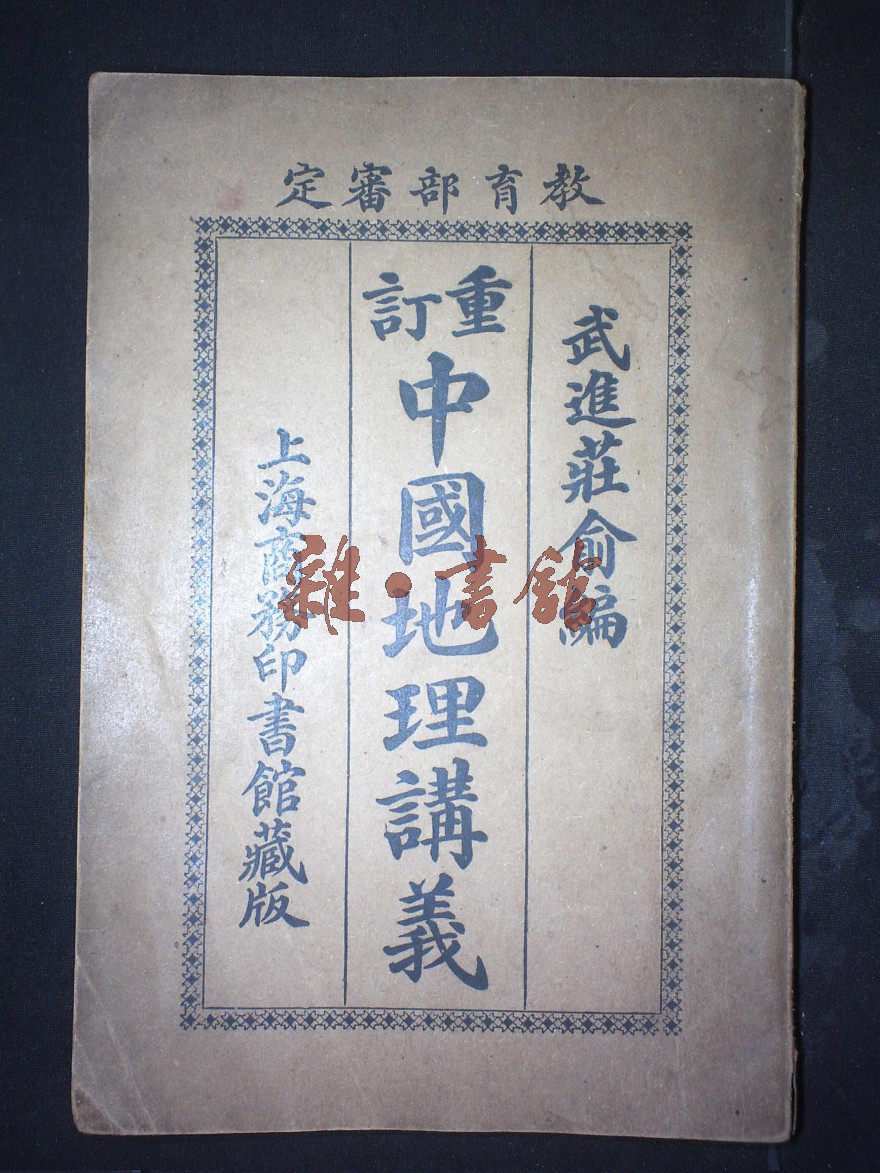 教育部審定
武進莊俞編
重訂
中國地理講義
上海商務印書館藏版
雜·書館